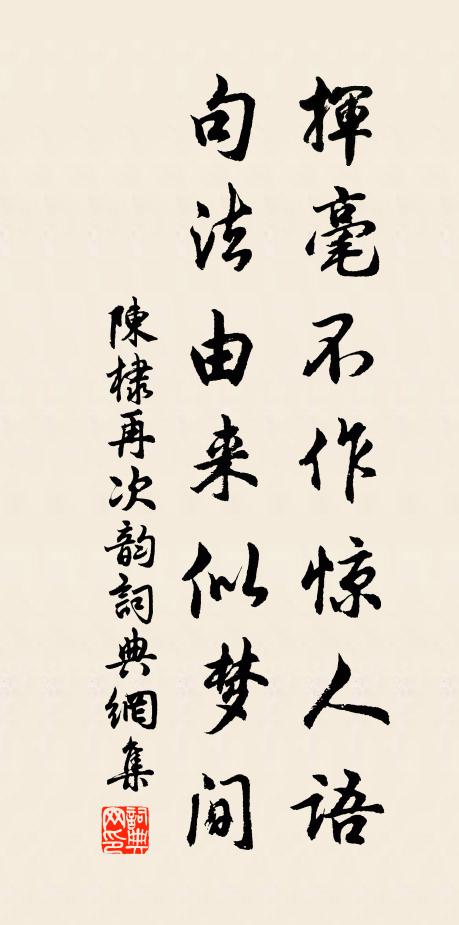 揮毫不作惊人語
句法由来似梦间
陳棣再次韵詞典網集
詞典
网印